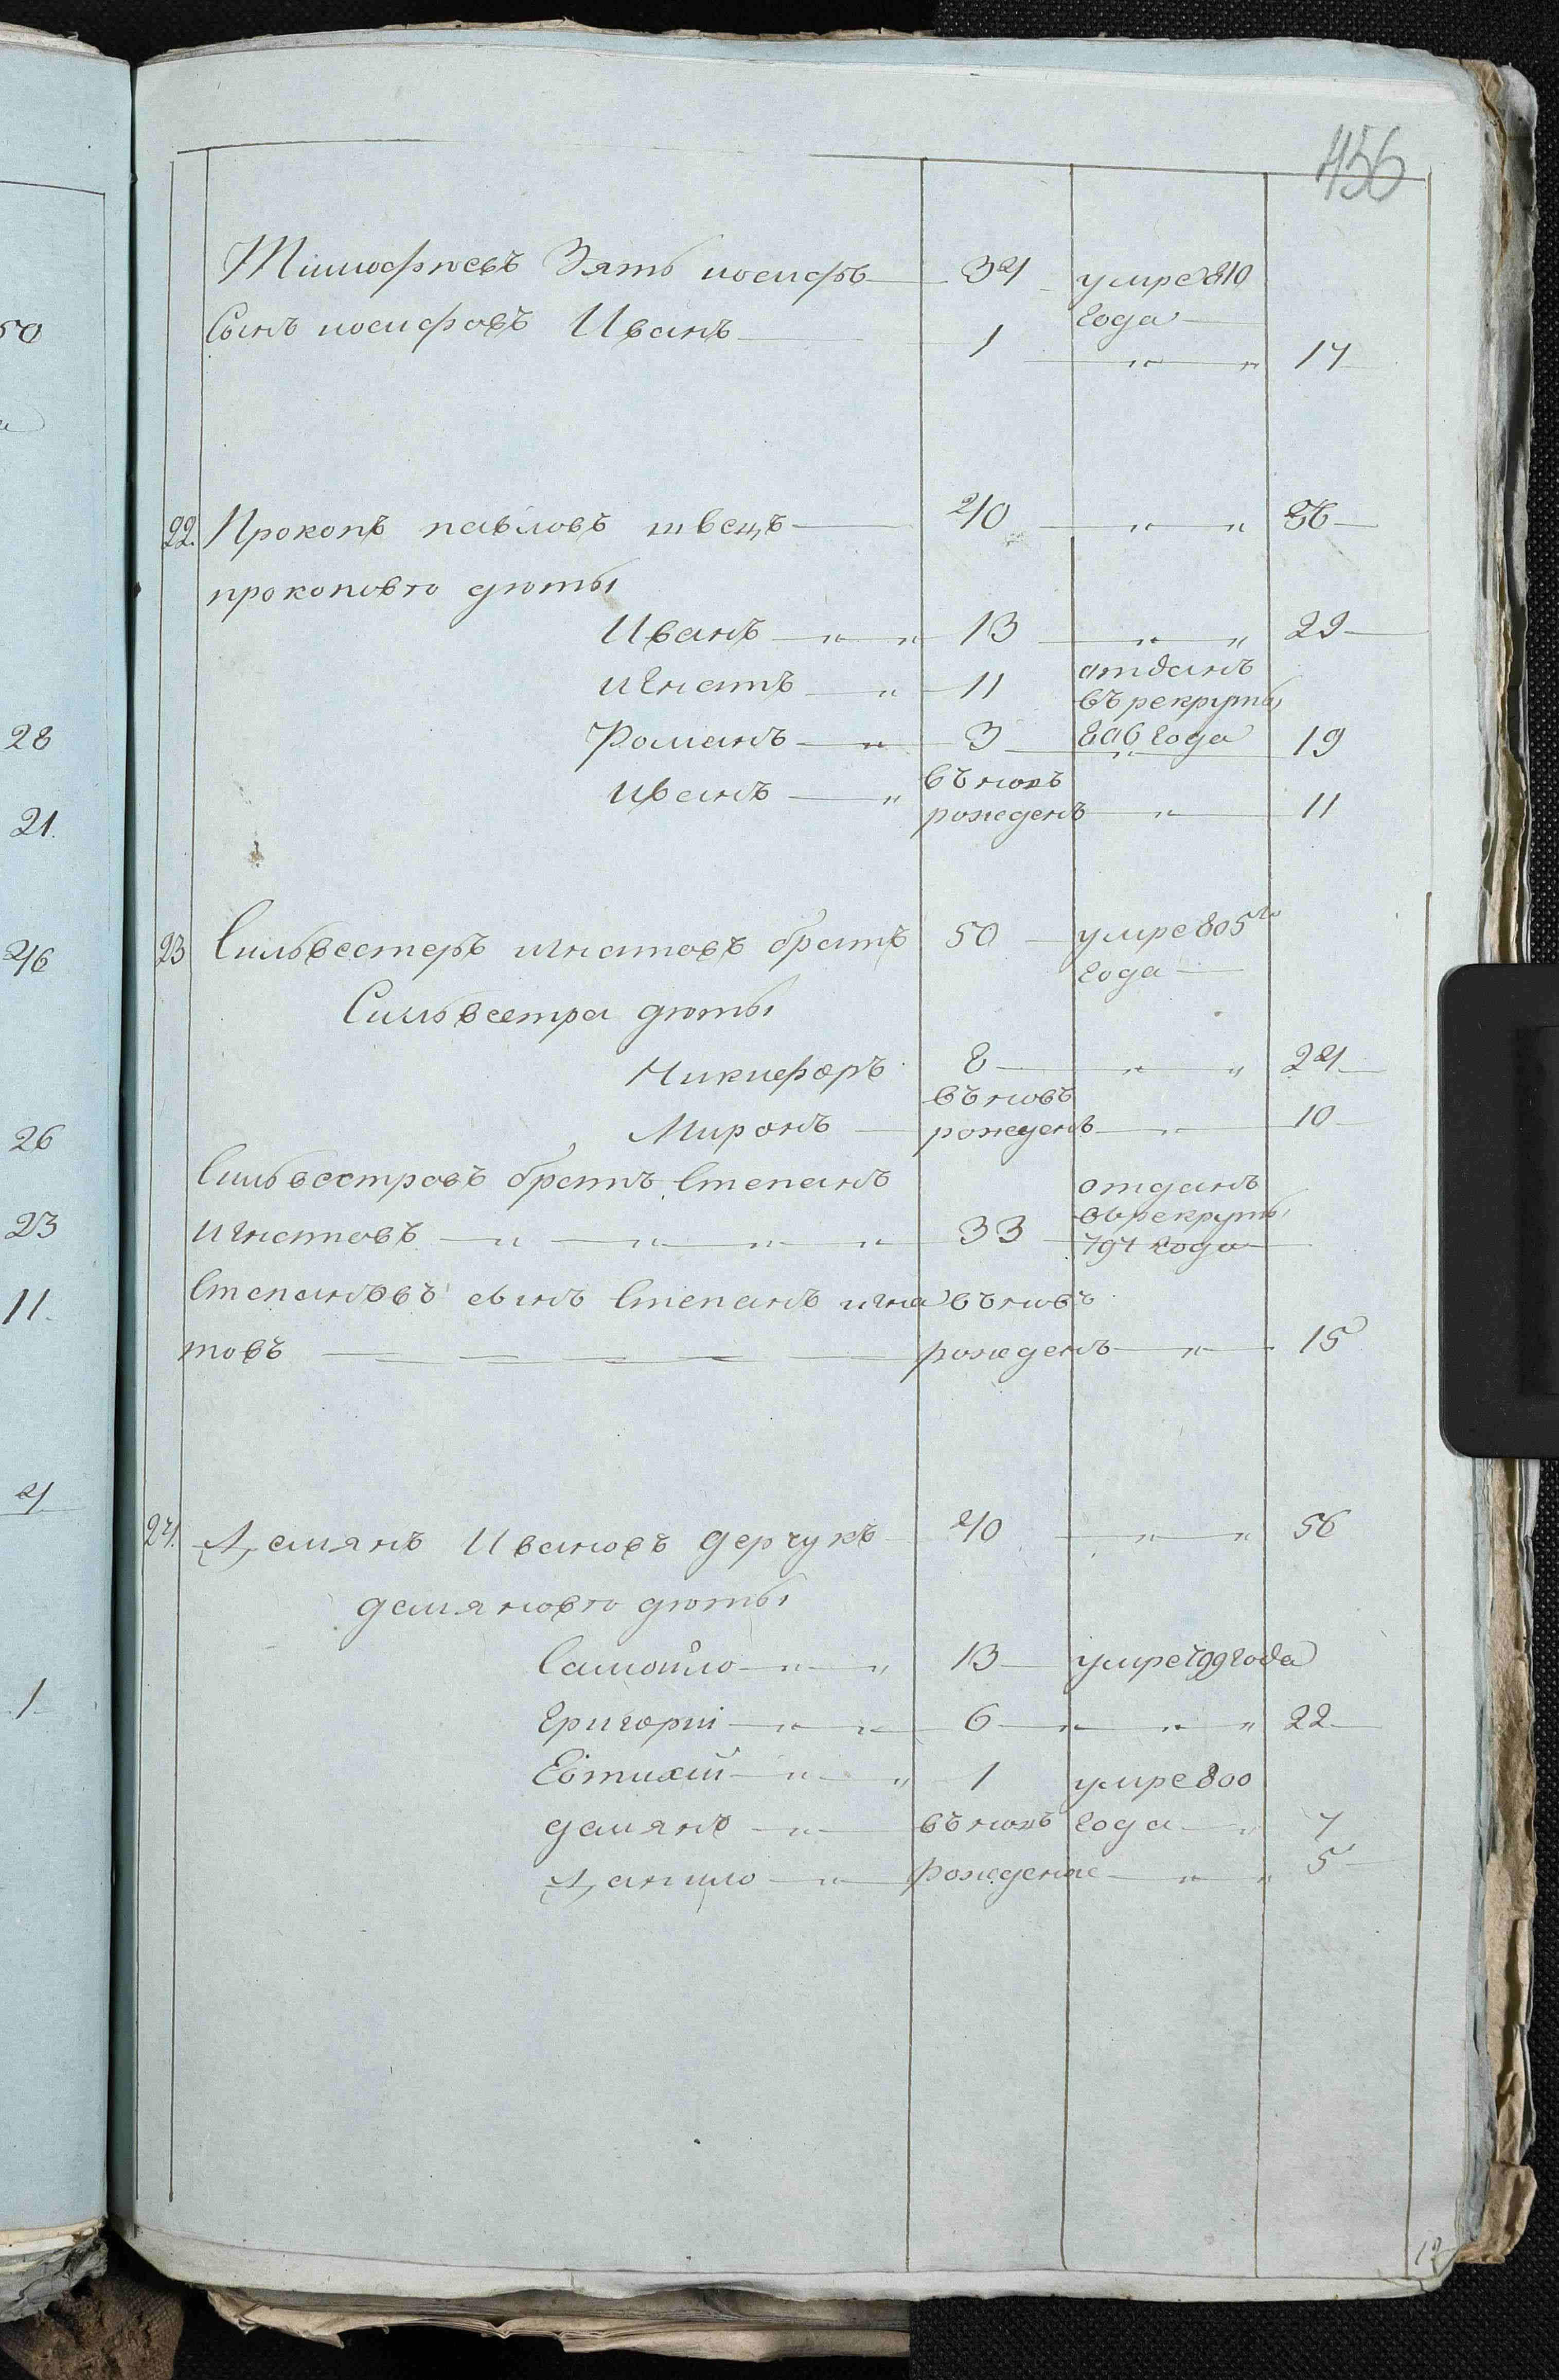 456
Тимофѣевъ Зять иосифъ 34 умре 810
года
Сынъ иосифовъ Иванъ 1 " " 17
22. Прокопъ павловъ швецъ 40 " " 56
прокопового дѣты
Иванъ " " 13 " " 29
игнатъ " 11 отданъ
въ рекруты
806 года
Романъ " 3 " 19
иванъ " въновь
рожденъ " 11
23 Сильвестеръ игнатовъ братъ 50 умре 805го
года
Сильвестра дѣты
Никифоръ 8 " " 24
Миронъ въновъ
рожденъ " 10
Сильвестровъ братъ Степанъ отданъ
въ рекруты
игнатовъ " " " " 33 797 года
Степановъ сынъ Степанъ игна въновъ
товъ рожденъ " 15
24. Демянъ Ивановъ дерчукъ 40 " " 56
демянового дѣты
Самойло " " 13 умре 799 года
Григорій " " 6 " " " 22
Евтихій " " 1 умре 800
года
демянъ " въновь " 7
Данило " рожденые " " 5
50
28
21.
46
26
23
11.
4
1
12